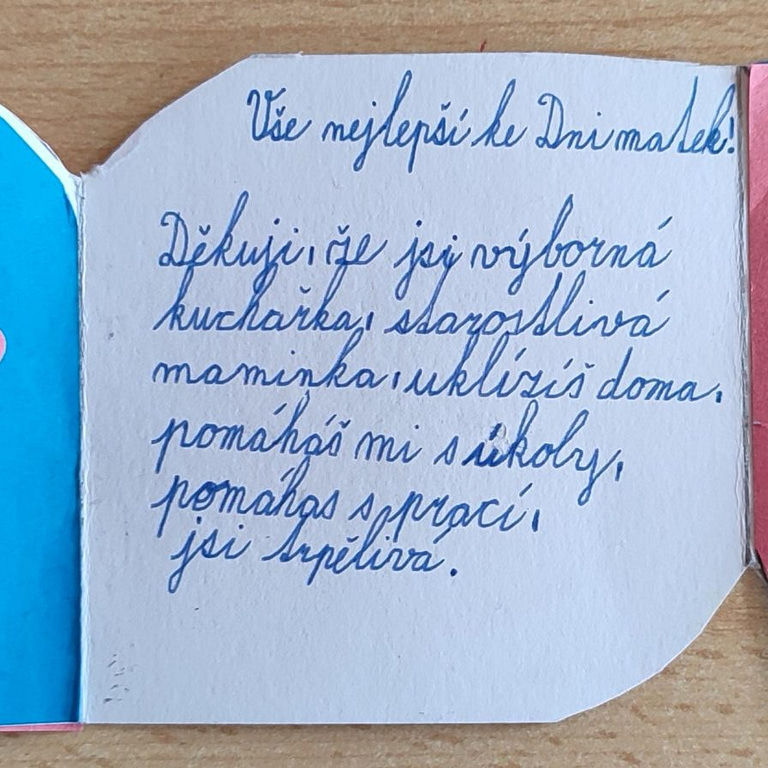 Vše nejlepší ke Dni matek!
Děkuji, že jsi výborná
kuchařka, starostlivá
maminka, uklízíš doma,
pomáháš mi s úkoly,
pomáhas s prací,
jsi trpělivá.